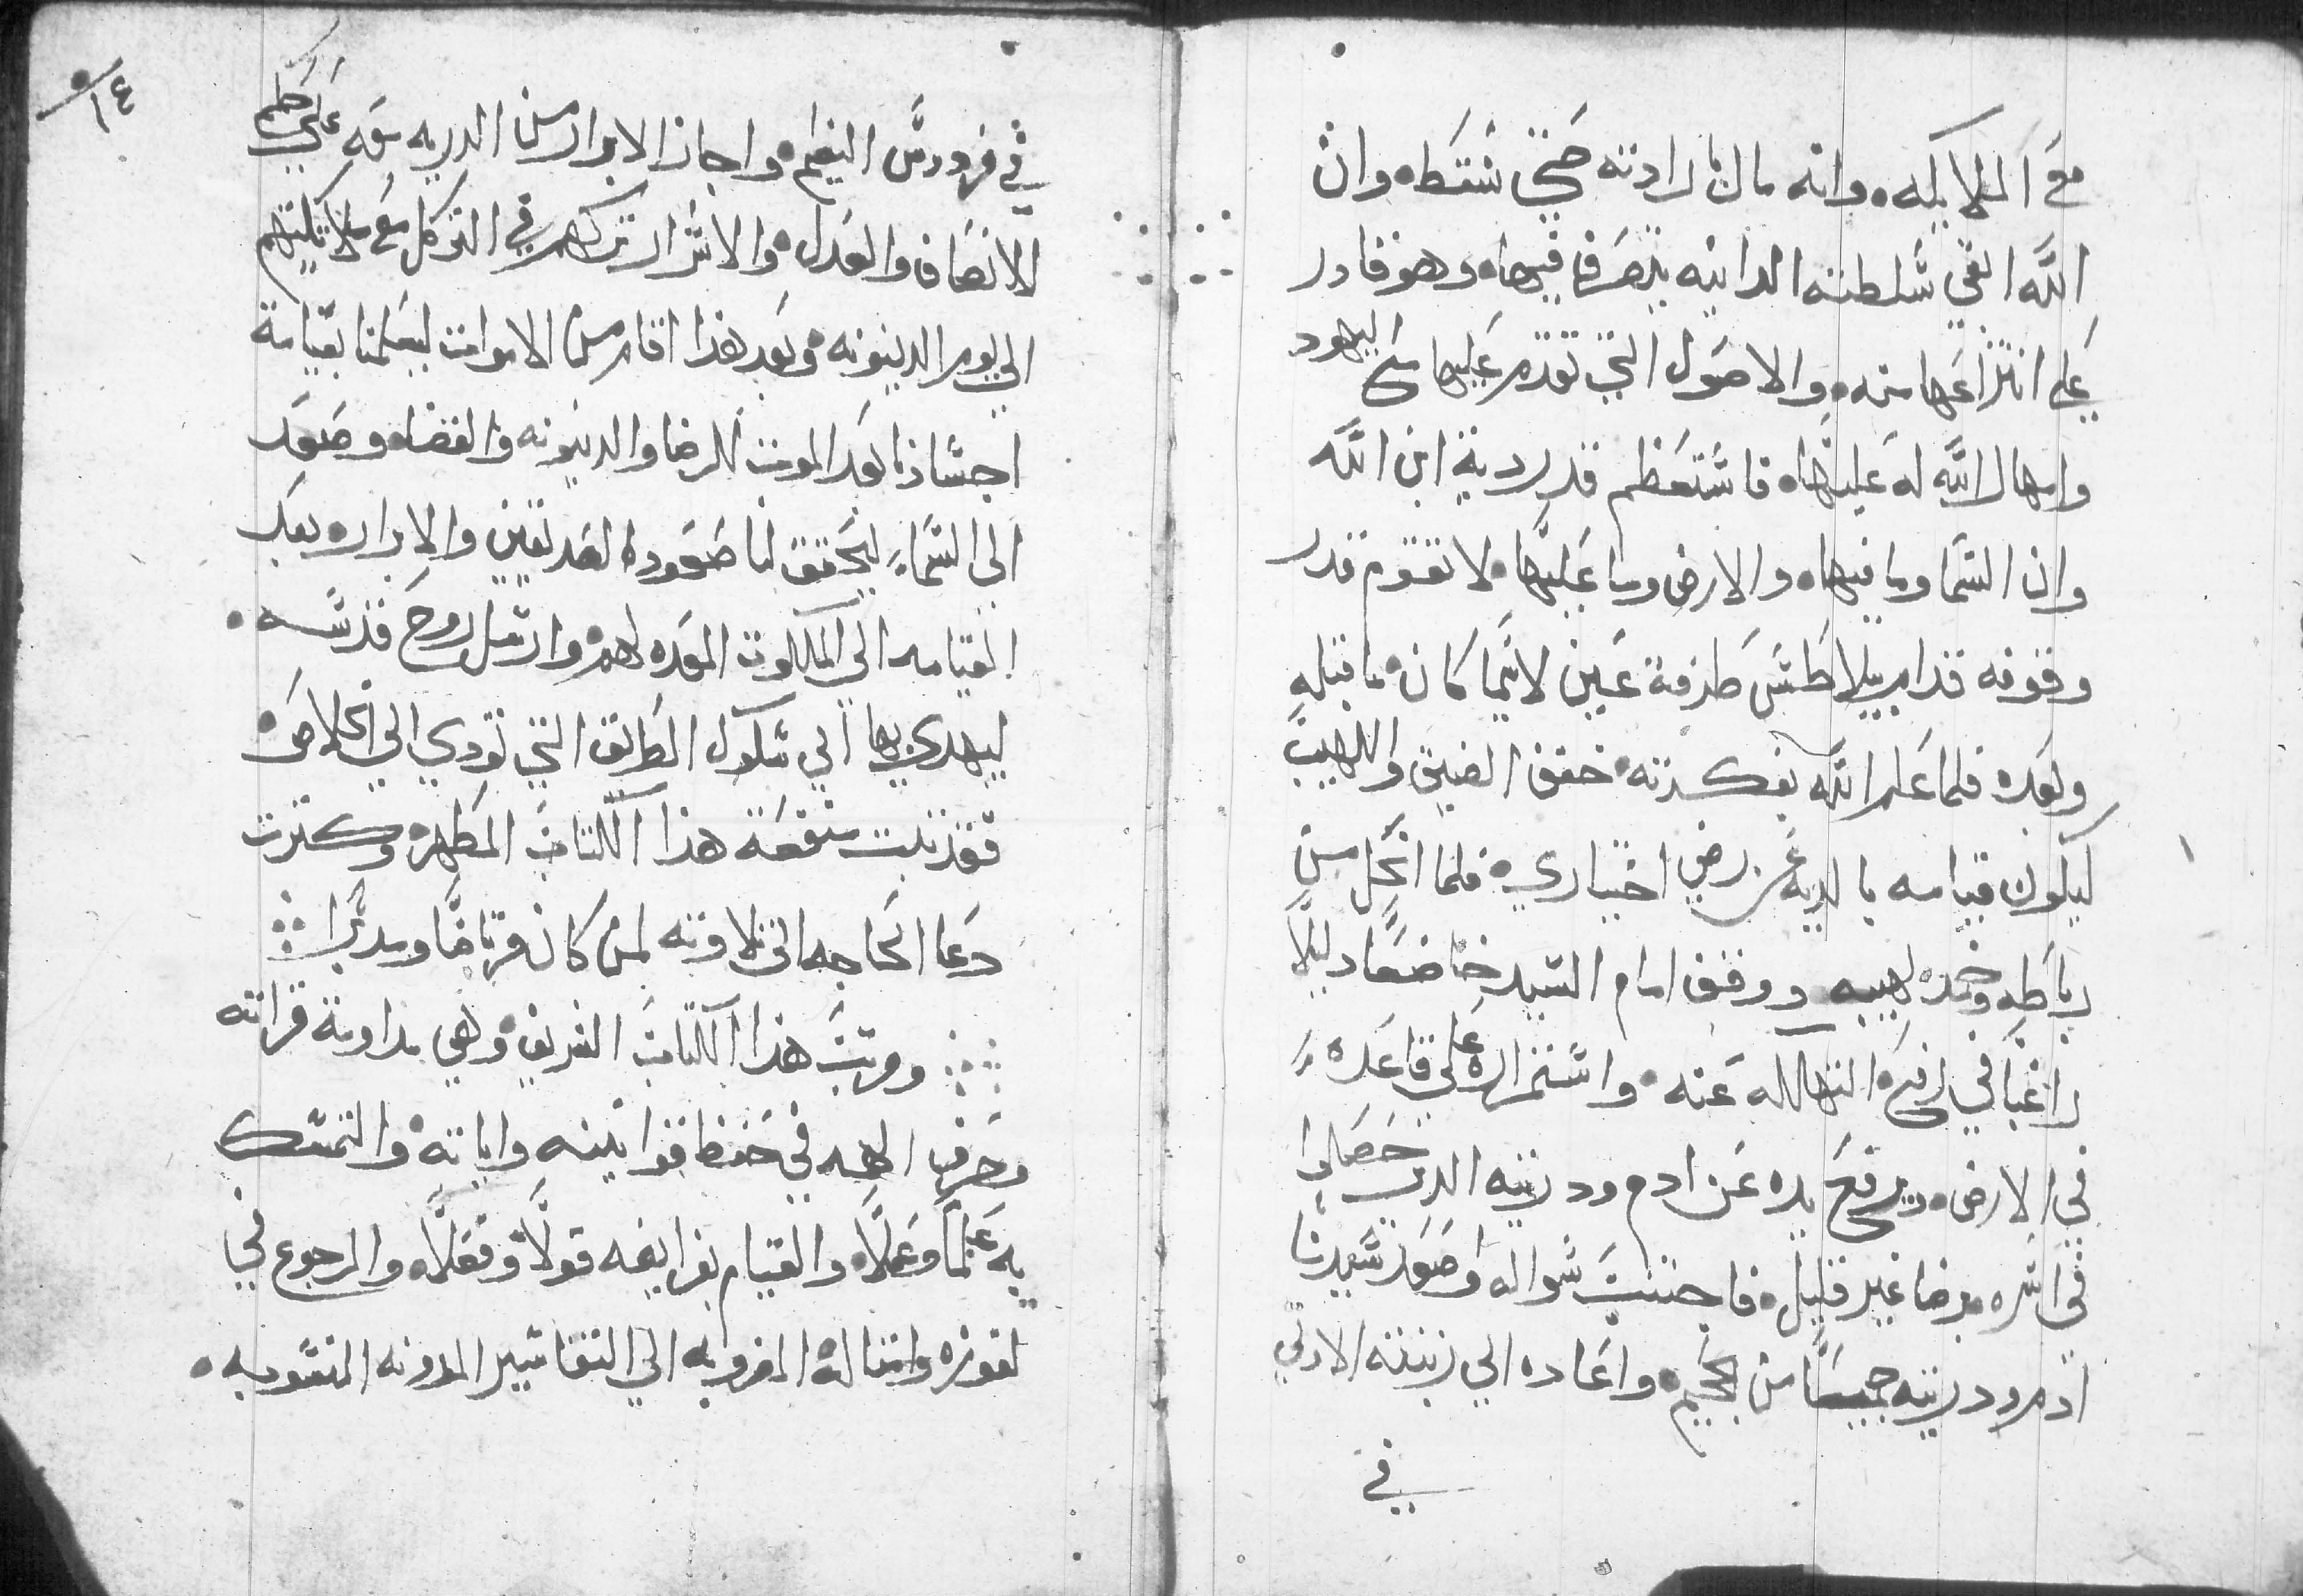 مع الملايكه. وانه مال بارادته حتي سقط. وان
الله القي سلطنته الدانيه يتصرف فيها. وهو قادر
علي انتزاعها منه. والاصول التي تقدم عليها سح اليهود
وامهال الله له عليها. فاستعظم قدر دية ابن الله
وان السما وما فيها. والارض وما عليها. لا تقوم قدر
وقوفه قدام بيلاطس طرفة عين لاسيما كان ما قبله
وبعده فلما علم الله بفكرته. خفف الضيق واللهيب
ليكون قيامه بالديه عن رضي اختياري. فلما انحل من
رباطه وخمد لهيبه. ووقف امام السيد خاضعا دليلا
راغبا في رفع النهاله عنه. واستنزاله علي قاعده
في الارض. ويرفع يده عن ادم ودريته الدين حصلوا
في اسره برضا غير قليل. فاجننت سواله وصعد سيدنا
ادم ودريته جميعا من الجحيم. واعاده الي زينته الاولي
في
١٤
في فردوس النعيم. واجاز الابرار من الدريه معه علي حكم
الانصاف والعدل. والاشرار تركهم في التوكل مع ملايكتهم
الي يوم الدينونه. وبعد هذا اقام من الاموات ليعلمنا بقيامة
اجسادنا بعد الموت للرضا والدينونه والقضا. وصعد
الي السما. ليحقق لنا صعود الصديقين والابرار. بعد
القيامه الي الملكوت المعده لهم. وارسل روح قدسه.
ليهدي بها الي سلوك الطريق التي تودي الي الخلاص.
فقد ثبت منفعة هذا الكتاب المطهر. وكثرت
دعا الحاجه الي تلاوته لمن كان مرتاضا ومدبرا
ومرتب هذا الكتاب الشريف. وهي مداومة قراته
وصرف الهمه في حفظ قوانينه واياته. والتمسك
به علما وعملا. والقيام بفرايضه قولا وفعلا. والرجوع في
لغوزه وامثاله المضروبه الي التفاسير المدونه المنسوبه.